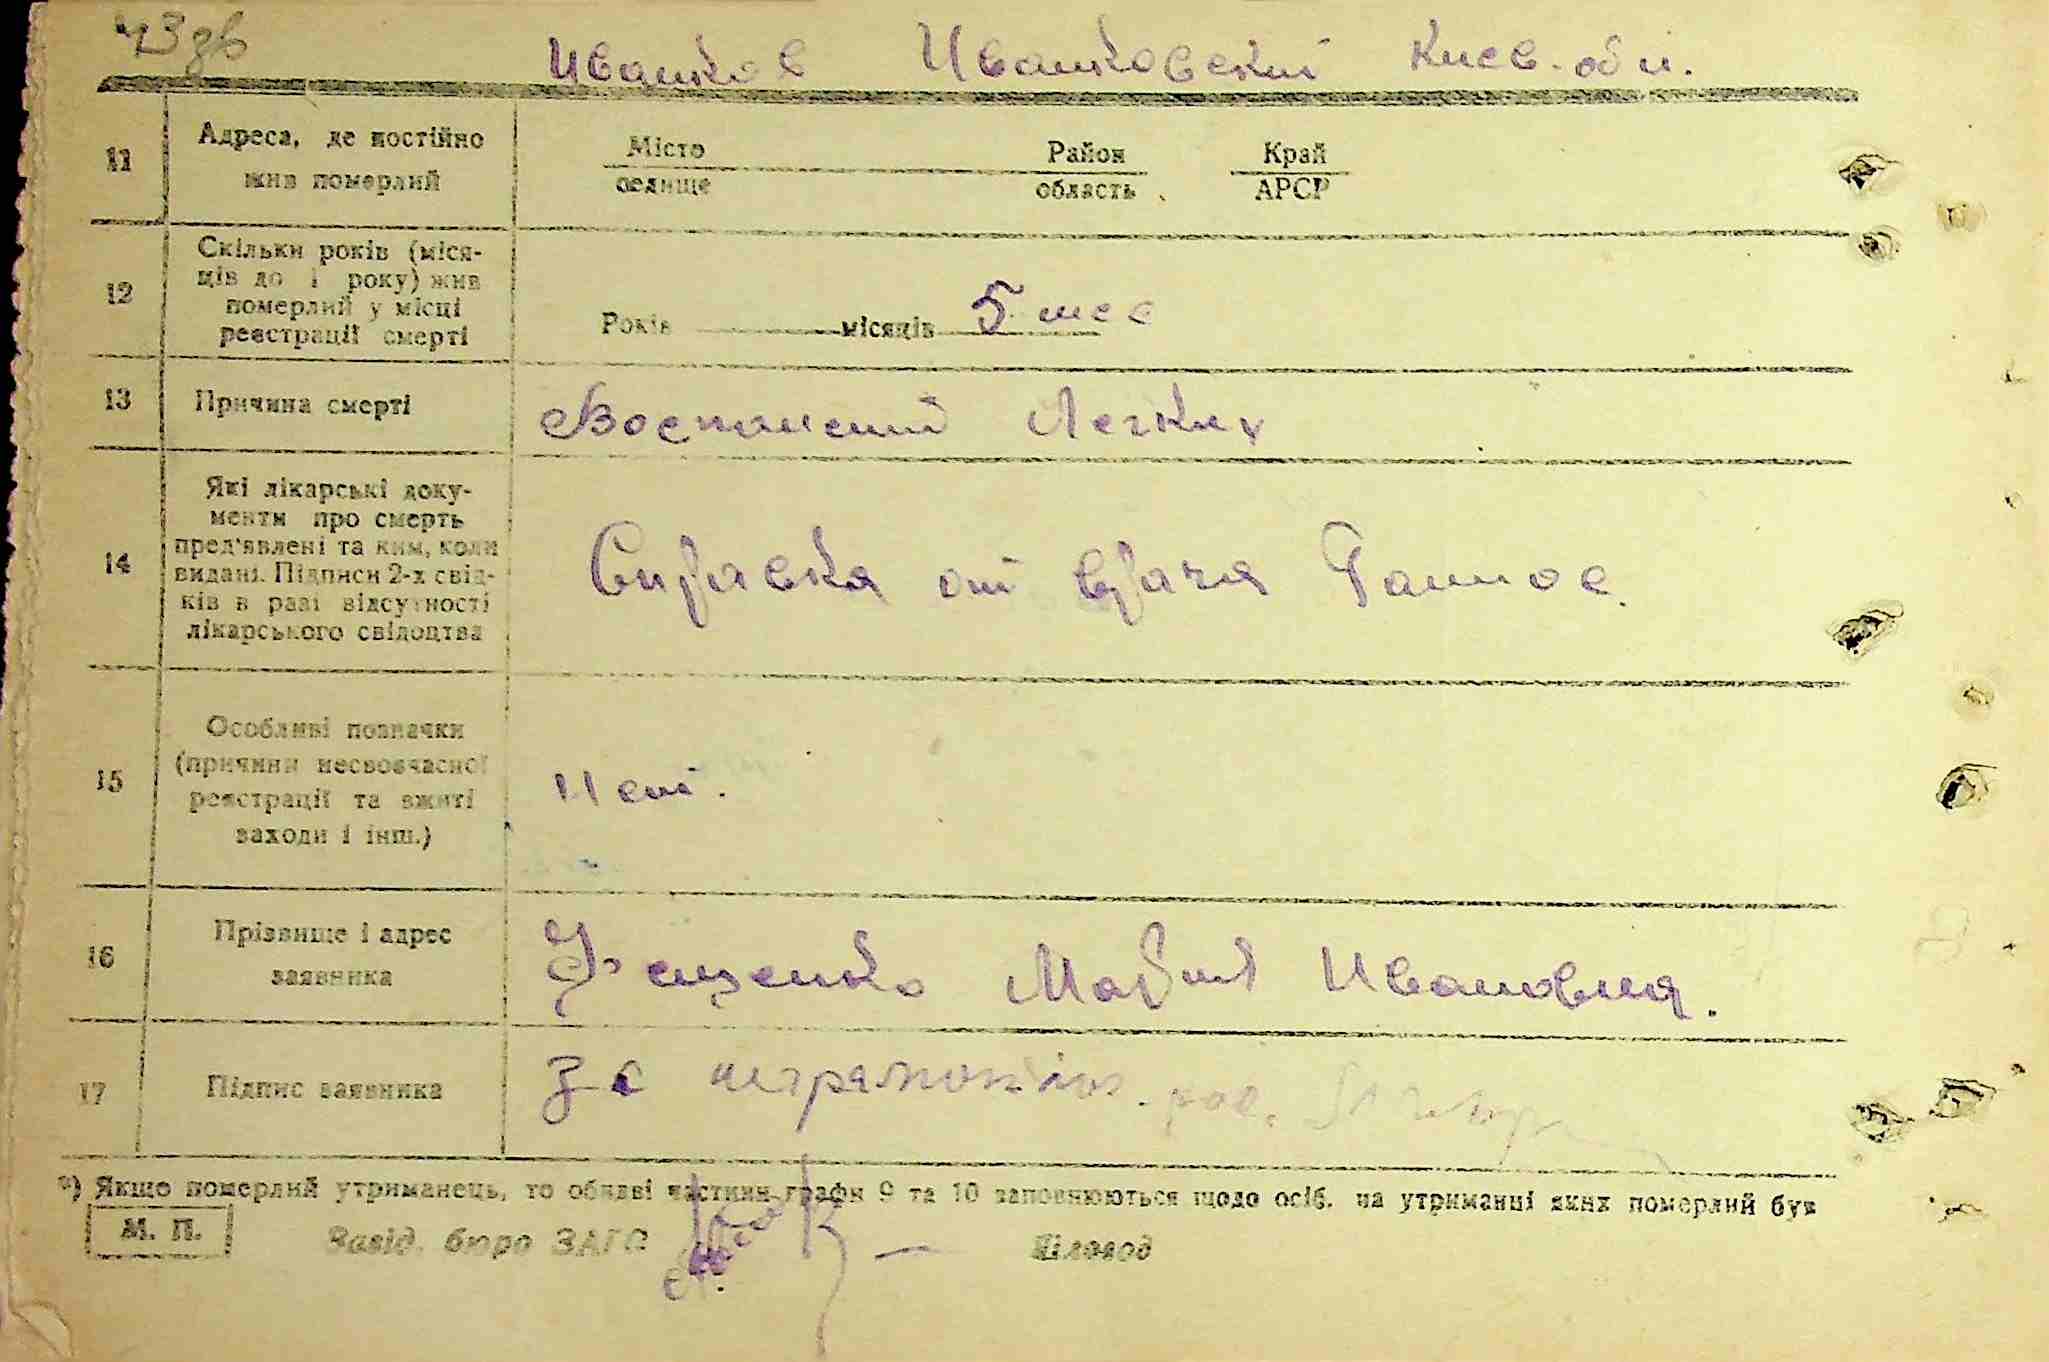 Иванков Иванковский Киев. обл.
11
Адреса, де постійно
жив померлий
Місто
селище
Район
область
Край
АРСР
12
Скільки років (міся-
ців до 1 року) жив
померлий у місці
реєстрації смерті
Років місяців 5 мес
13
Причина смерті
Воспаления Легких
14
Які лікарські доку-
менти про смерть
пред'явлені та ким, коли
видані. Підписи 2-х свід-
ків в разі відсутності
лікарського свідоцтва
Справка от врача
15
Особливі позначки
(причини несвоєчасної
реєстрації та вжиті
заходи і інш.)
Нет.
16
Прізвище і адрес
заявника
Фещенко Мария Ивановня.
17
Підпис заявника
За неграмотную рос.
*) Якщо померлий утриманець, то обидві частини графи 9 та 10 заповнюються щодо осіб, на утриманні яких померлий був
М. П.
Завід. бюро ЗАГС
Діловод